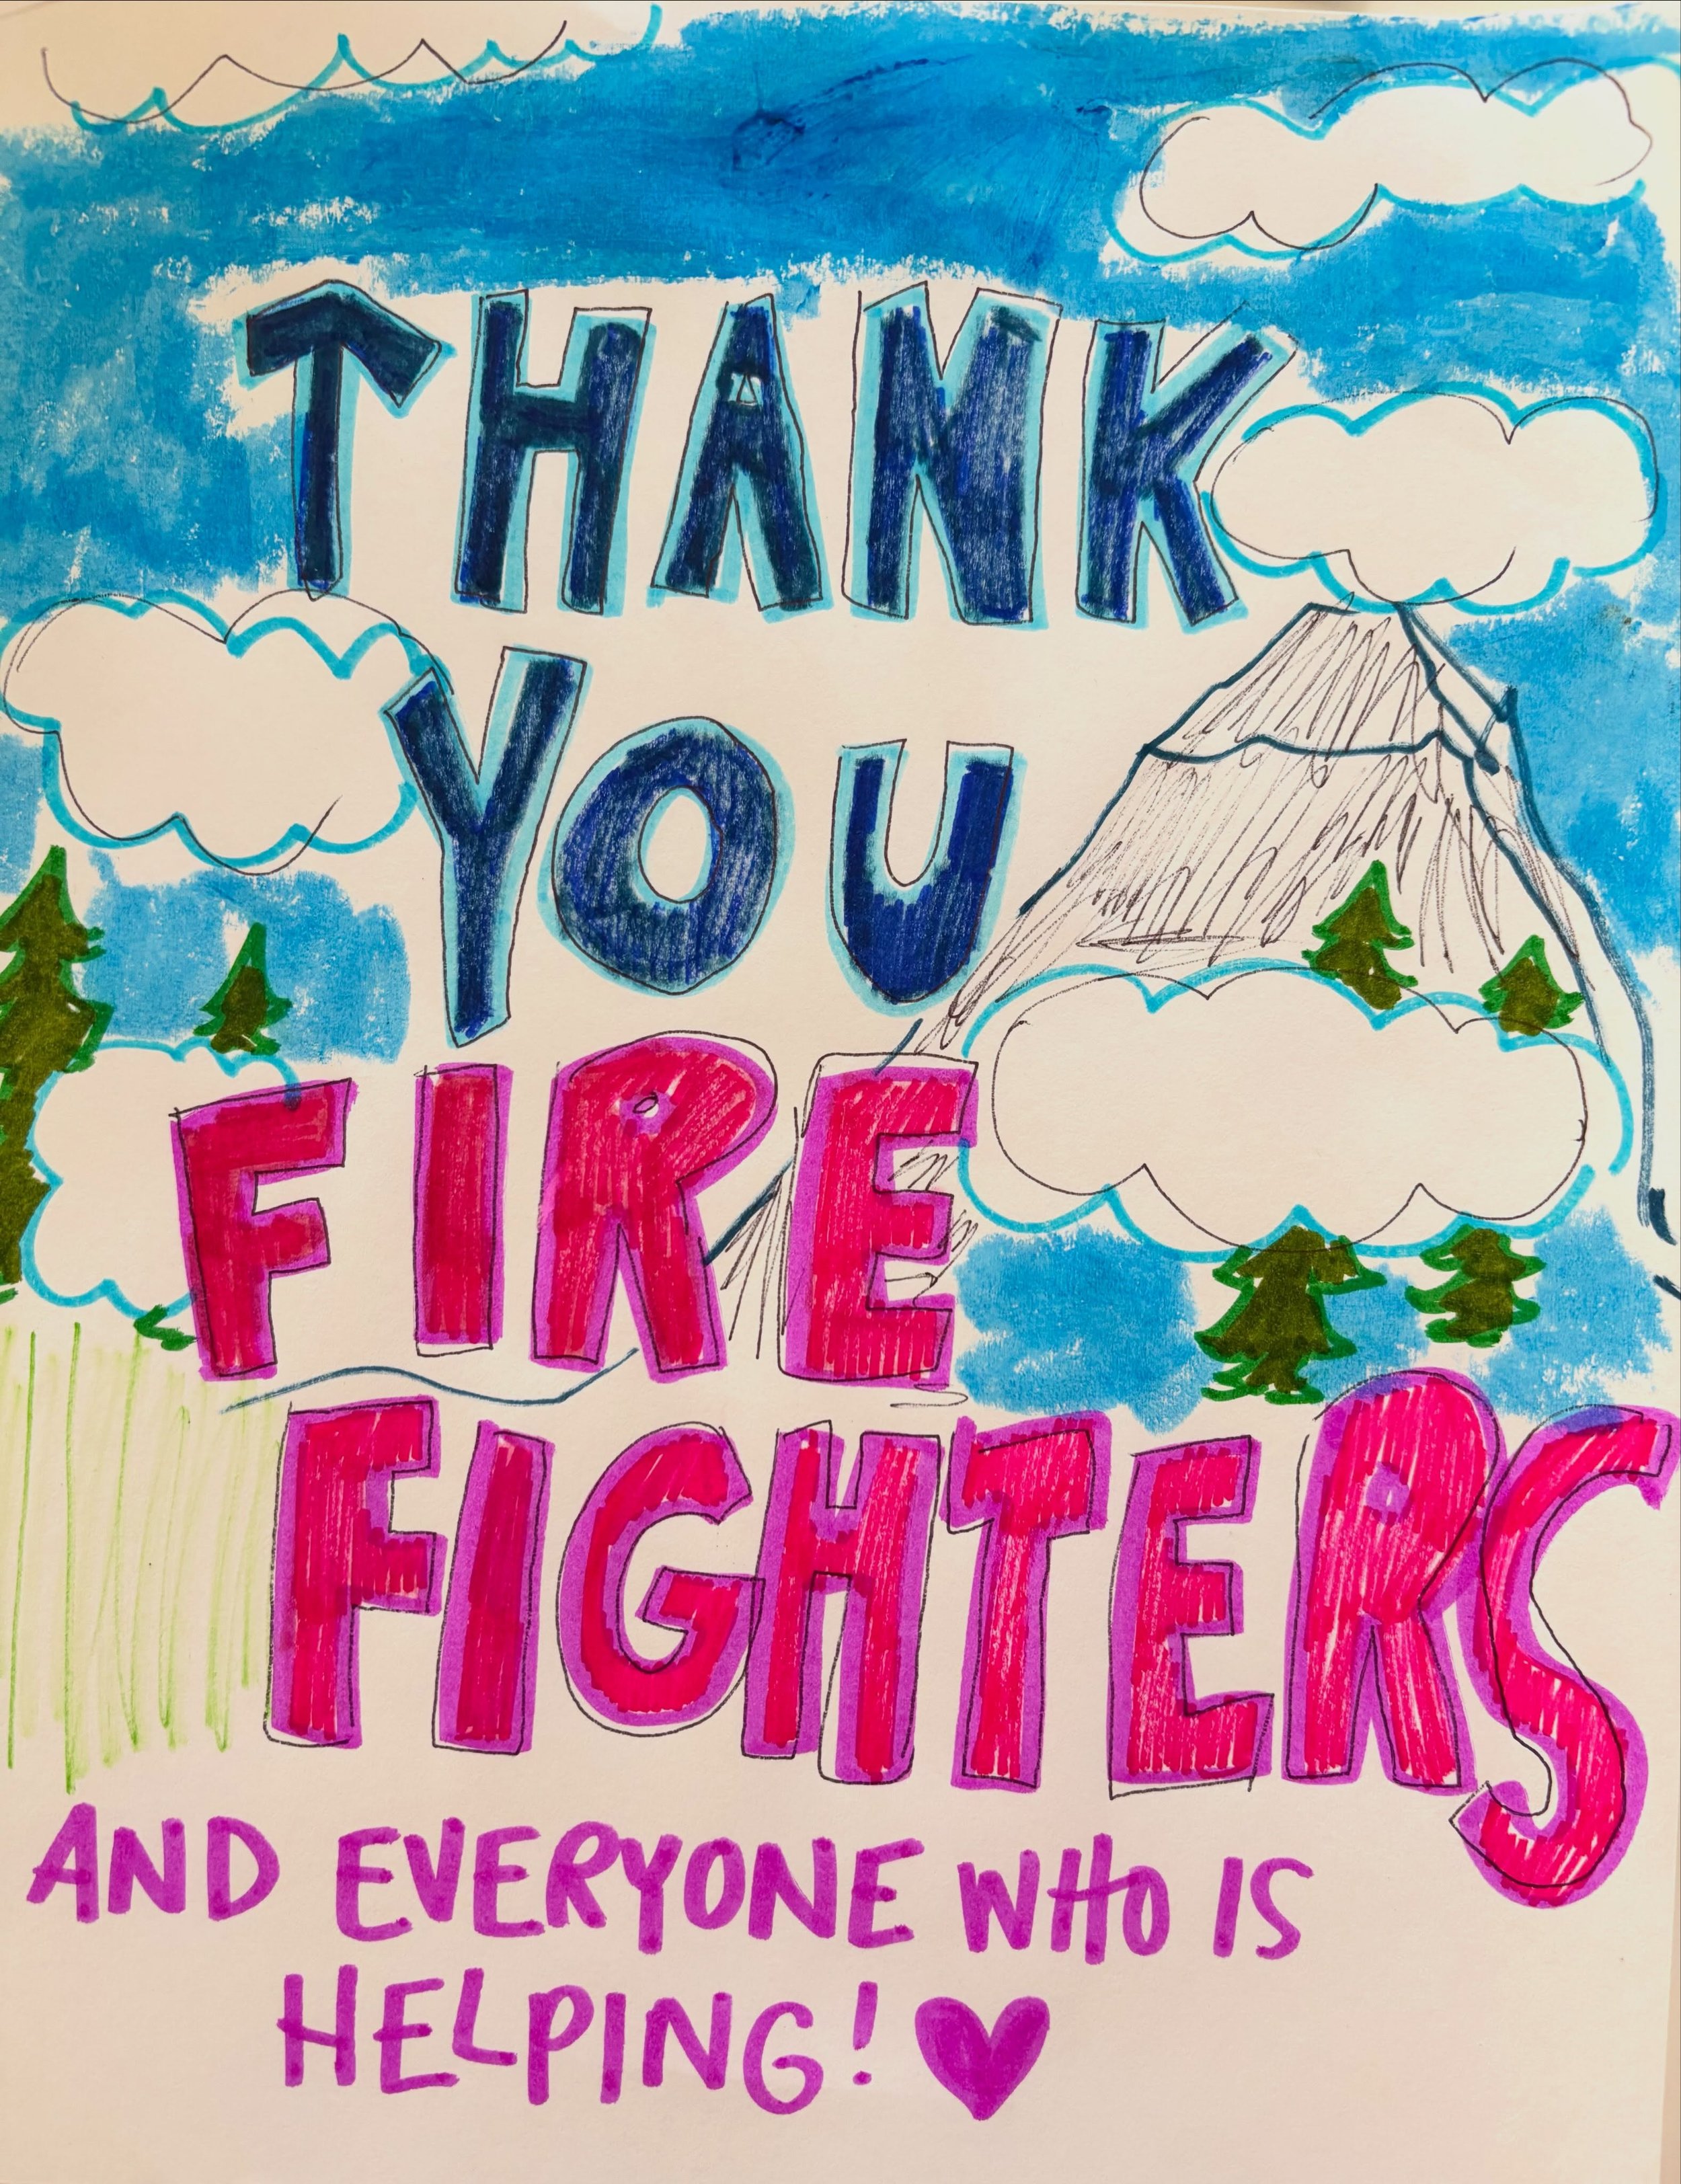 THANK
YOU
FIRE
FIGHTERS
AND EVERYONE WHO IS
HELPING!